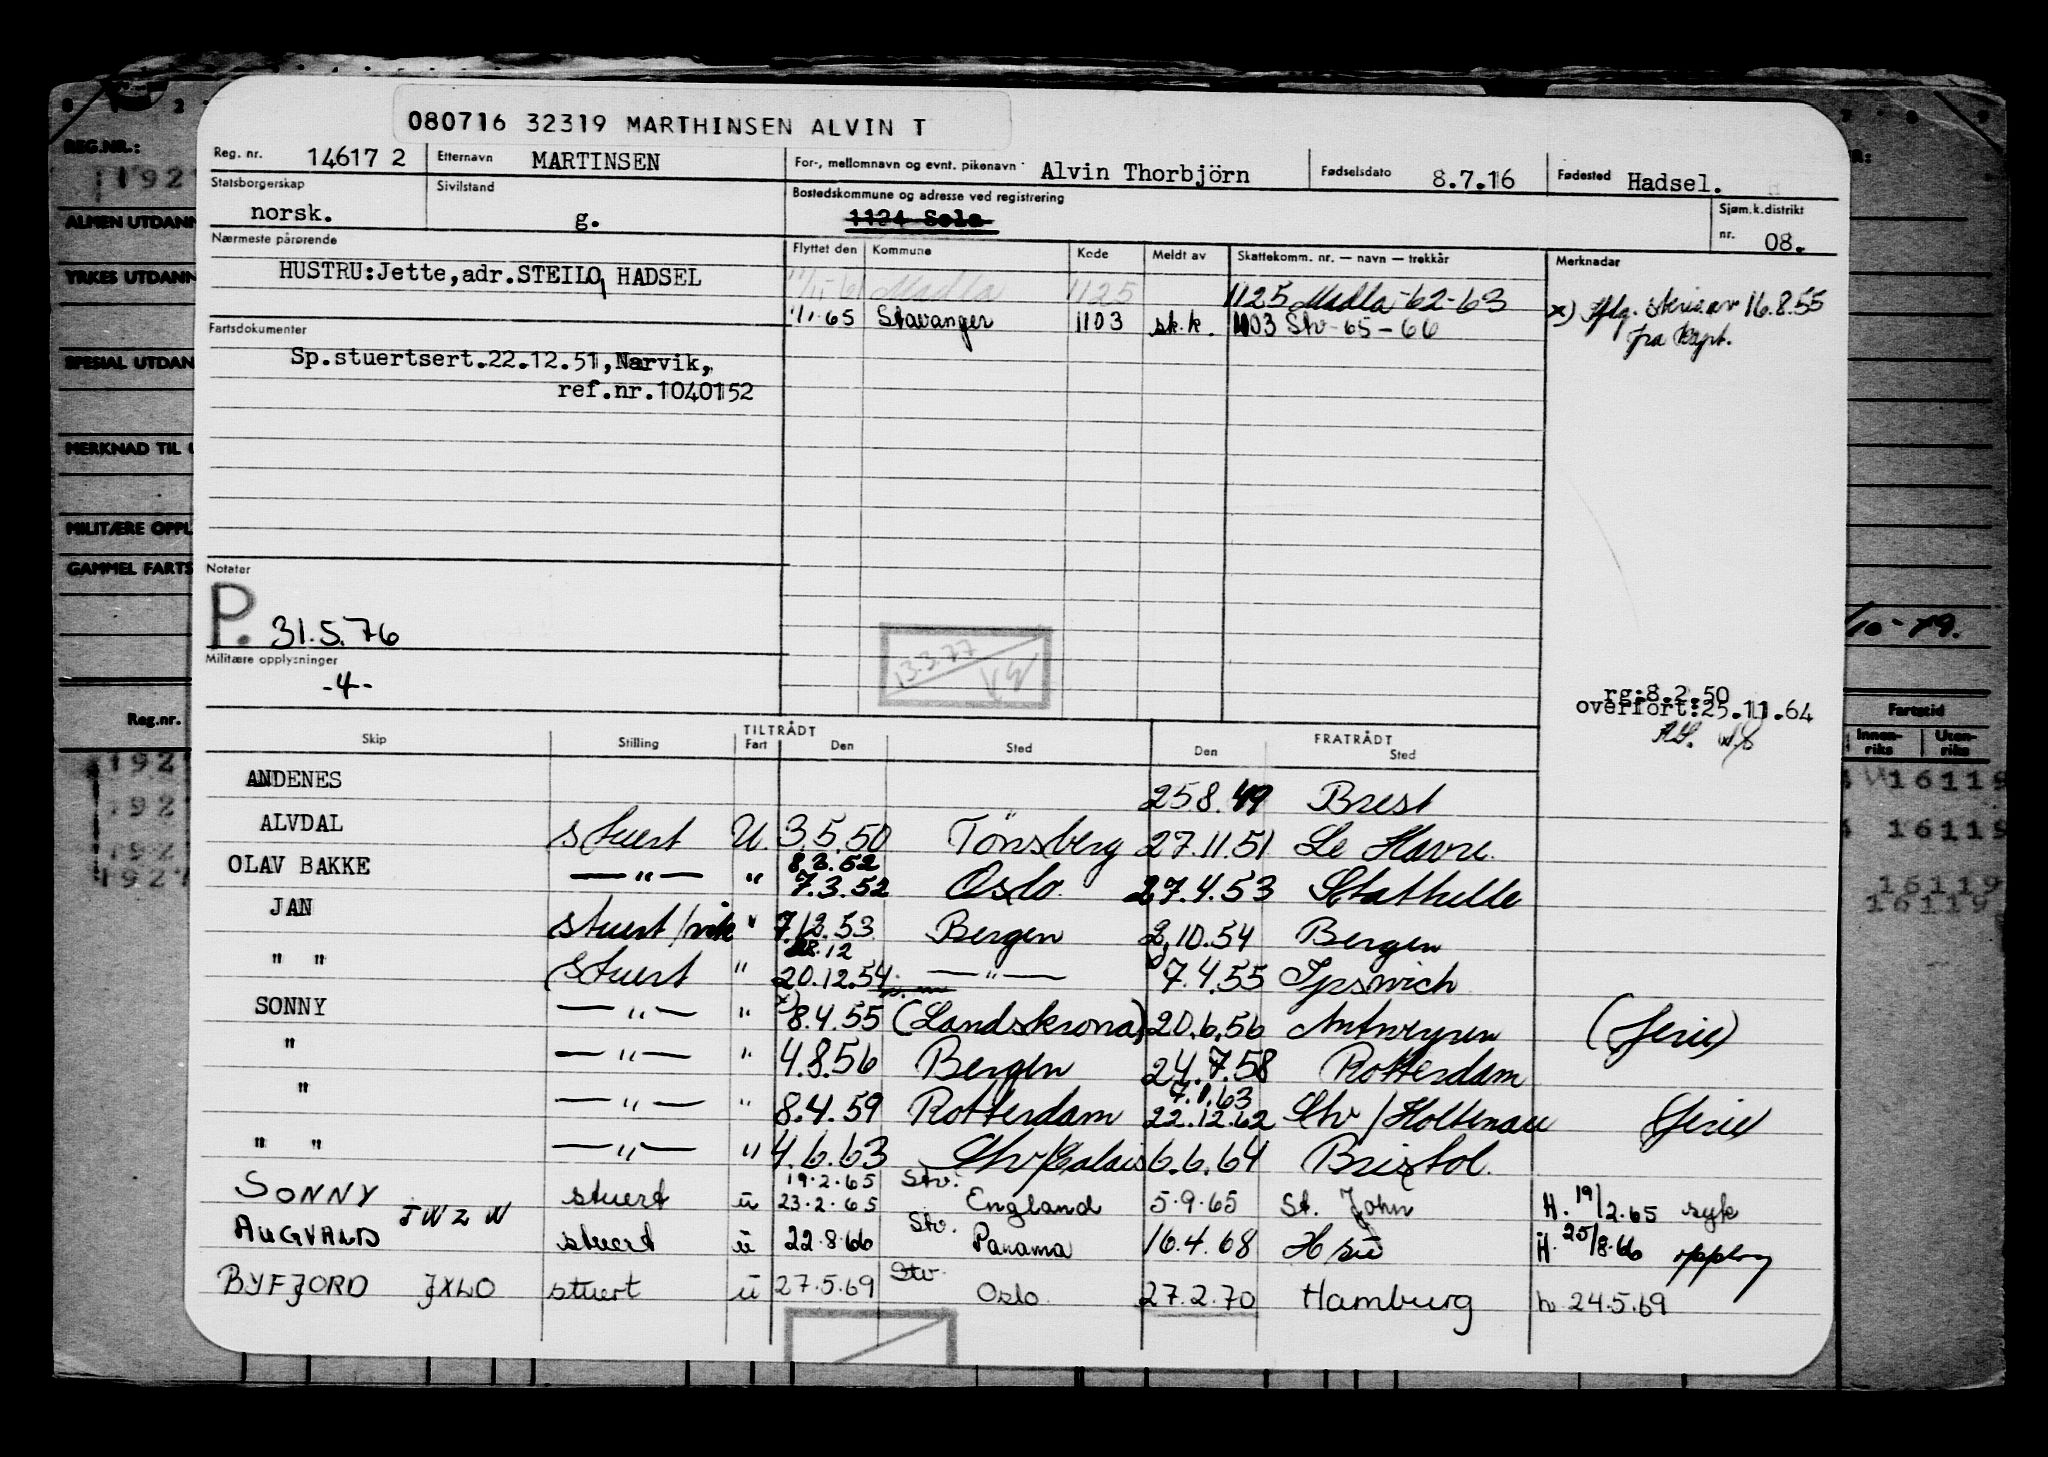 080716 32319 MARTHINSEN ALVIN T
Reg. nr. 14617 2 Etternavn MARTINSEN For-, mellomnavn og evnt. pikenavn Alvin Thorbjörn Fødselsdato 8.7.16 Fødested Hadsel.
Statsborgerskap norsk. Sivilstand g. Bostedskommune og adresse ved registrering 1124 Sola Sjøm.k.distrikt nr. 08.
Nærmeste pårørende Flyttet den Kommune Kode Meldt av Skattekomm. nr. — navn — trekkår Merknader
HUSTRU:Jette,adr.STEILO, HADSEL Madla 1125 1125 Madla -62-63
1/1-65 Stavanger 1103 sk.k. 1103 Stv -65-66 x) 16.8.55
fra kapt.
Fartsdokumenter
Sp.stuertsert.22.12.51,Narvik,
ref.nr.1040152
Notater
P. 31.5.76
13.3.77
Militære opplysninger
-4-
rg:8.2.50
overført:25.11.64
TILTRÅDT FRATRÅDT
Skip Stilling Fart Den Sted Den Sted
ANDENES 25.8.49 Brest
ALVDAL stuert U. 3.5.50 Tønsberg 27.11.51 Le Havre.
8.3.52
OLAV BAKKE —"— " 7.3.52 Oslo. 27.4.53 Stathelle
JAN stuert " 7.12.53 Bergen 2.10.54 Bergen
28.12
" " stuert " 20.12.54 —"— 7.4.55 Ipswich
SONNY —"— " x) 8.4.55 (Landskrona) 20.6.56 Antwerpen (ferie)
" —"— " 4.8.56 Bergen 24.7.58 Rotterdam
7.1.63
" —"— " 8.4.59 Rotterdam 22.12.62 Stv / Holtenau (ferie)
" " —"— " 4.6.63 Stv/Calais 6.6.64 Bristol.
19.2.65 Stv.
SONNY stuert u 23.2.65 England 5.9.65 St. John H. 19/2.65 syk
AUGVALD JWZW stuert u 22.8.66 Stv. Panama 16.4.68 H. 25/8.66
BYFJORD JXLO stuert u 27.5.69 Stv. Oslo. 27.2.70 Hamburg h. 24.5.69
REG.NR.:
ALMEN UTDANN
YRKES UTDANN
SPESIAL UTDAN
MERKNAD TIL U
MILITÆRE OPPL
GAMMEL FARTS
Reg.nr.
/10-79.
Fartstid
Innen-riks Uten-riks
16119
16119
16119
16119